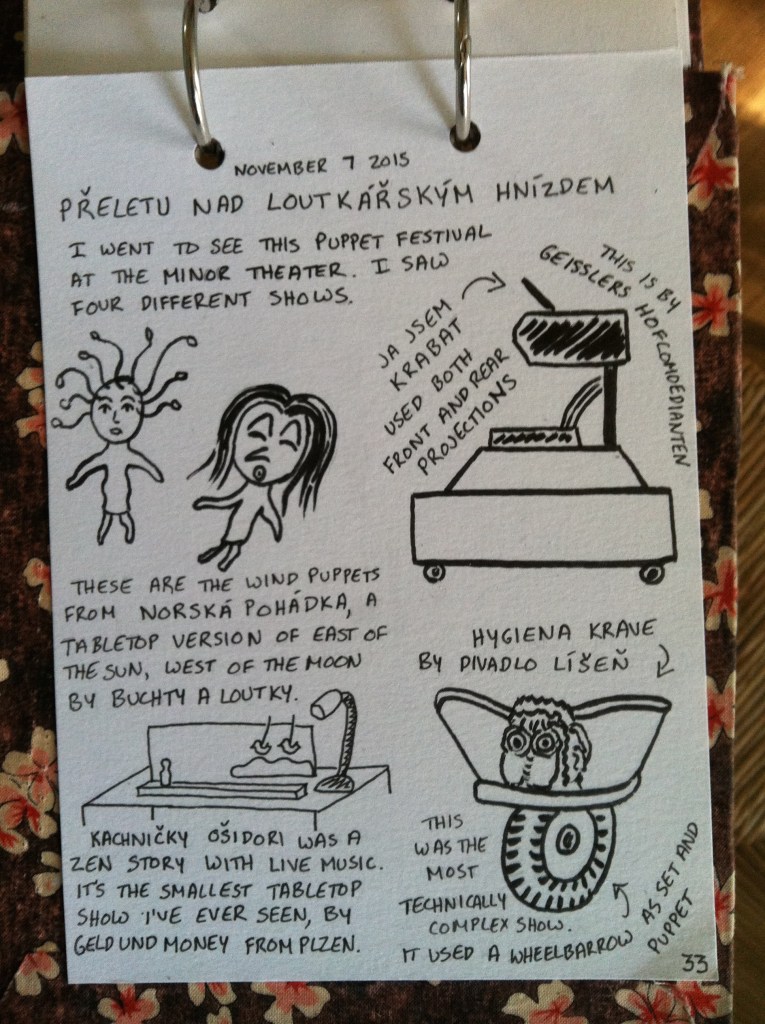 NOVEMBER 7 2015
PŘELETU NAD LOUTKÁŘSKÝM HNÍZDEM
I WENT TO SEE THIS PUPPET FESTIVAL
AT THE MINOR THEATER. I SAW
FOUR DIFFERENT SHOWS.
JA JSEM
KRABAT
USED BOTH
FRONT AND REAR
PROJECTIONS
THIS IS BY
GEISSLERS HOFCOMOEDIANTEN
THESE ARE THE WIND PUPPETS
FROM NORSKÁ POHÁDKA, A
TABLETOP VERSION OF EAST OF
THE SUN, WEST OF THE MOON
BY BUCHTY A LOUTKY.
HYGIENA KRAVE
BY DIVADLO LÍŠEŇ
KACHNIČKY OŠIDORI WAS A
ZEN STORY WITH LIVE MUSIC.
IT'S THE SMALLEST TABLETOP
SHOW I'VE EVER SEEN, BY
GELD UND MONEY FROM PLZEN.
THIS
WAS THE
MOST
TECHNICALLY
COMPLEX SHOW.
IT USED A WHEELBARROW AS SET AND
PUPPET
33